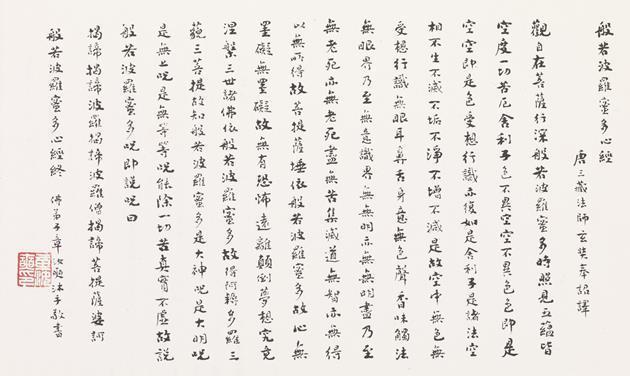 般若波羅蜜多心經
唐三藏法師玄奘奉詔譯
觀自在菩薩行深般若波羅蜜多時照見五蘊皆
空度一切苦厄舍利子色不異空空不異色色即是
空空即是色受想行識亦復如是舍利子是諸法空
相不生不滅不垢不淨不增不減是故空中無色無
受想行識無眼耳鼻舌身意無色聲香味觸法
無眼界乃至無意識界無無明亦無無明盡乃至
無老死亦無老死盡無苦集滅道無智亦無得
以無所得故菩提薩埵依般若波羅蜜多故心無
罣礙無罣礙故無有恐怖遠離顛倒夢想究竟
涅槃三世諸佛依般若波羅蜜多故得阿耨多羅三
藐三菩提故知般若波羅蜜多是大神咒是大明咒
是無上咒是無等等咒能除一切苦真實不虛故說
般若波羅蜜多咒即說咒曰
揭諦揭諦波羅揭諦波羅僧揭諦菩提薩婆訶
般若波羅蜜多心經終
佛弟子章汝奭沐手敬書